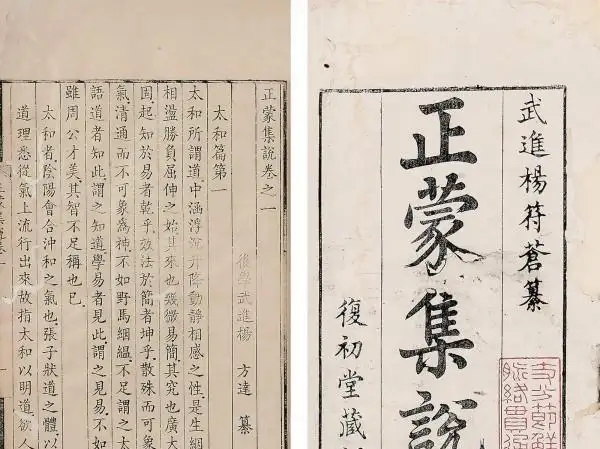 武進楊符蒼纂
正蒙集說
復初堂藏
正蒙集說卷之一
後學武進楊 方達 纂
太和篇第一
太和所謂道中涵浮沉升降動靜相感之性是生絪
相盪勝負屈伸之始其來也幾微易簡其究也廣大
固起知於易者乾乎效法於簡者坤乎散殊而可象
氣清通而不可象為神不如野馬絪縕不足謂之太
語道者知此謂之知道學易者見此謂之見易不如
雖周公才美其智不足稱也已
太和者陰陽會合沖和之氣也張子狀道之體以
道理悉從氣上流行出來故指太和以明道欲人